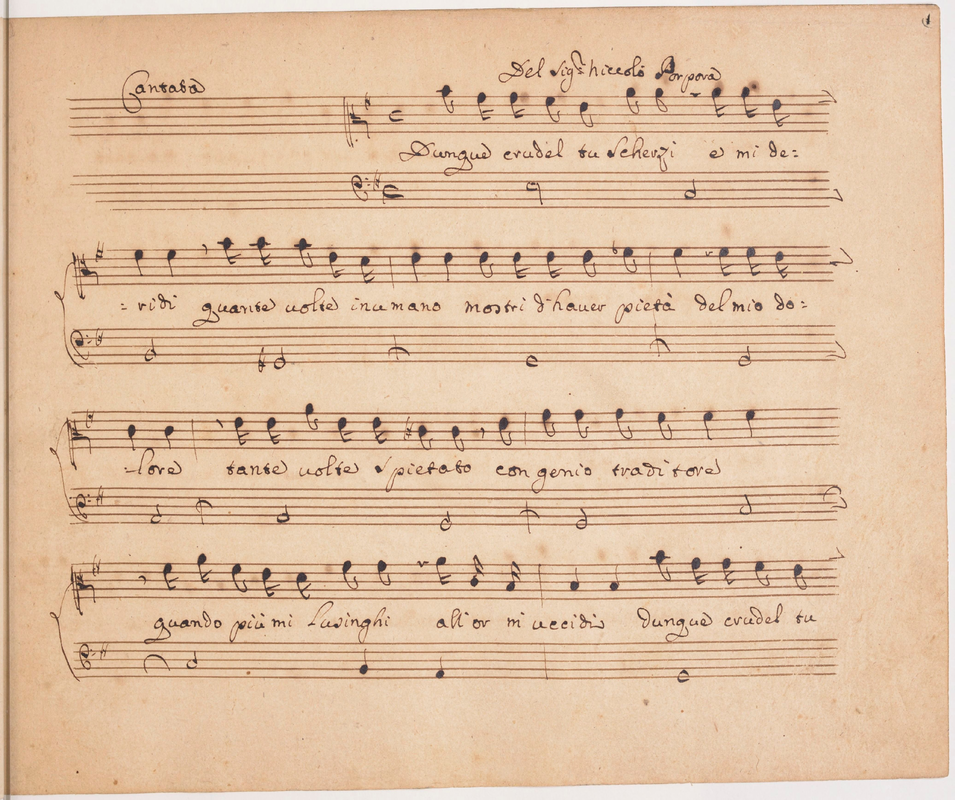 1
Cantata
Del Sig.r Niccolò Porpora
Dunque crudel tu Scherzi e mi de=
=ridi quante volte inumano mostri d'haver pietà del mio do=
=lore tante volte Spietato con genio traditore
quando più mi Lusinghi all'or m'uccidi dunque crudel tu